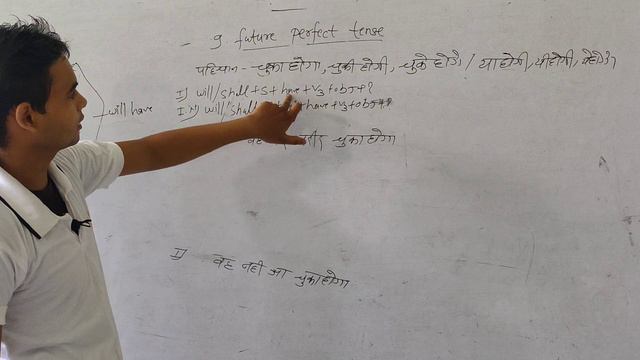 9 future perfect tense
पहिचान - चुका होगा, चुकी होगी, चुके होंगे / या होगी, यी होगी, ये होंगे
I) will/shall + S + have + V3 + obj + ?
will/shall have + V3 + obj + ?
will have
चुका होगा
I) वह नही जा चुका होगा